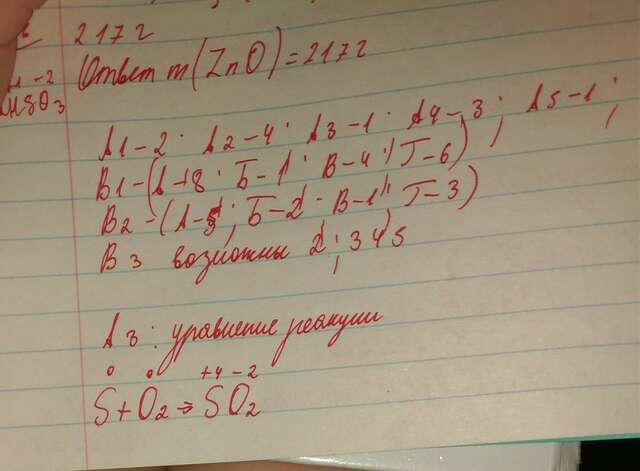 217 г
Ответ m(ZnO)=217г
-2
HSO3
А1-2; А2-4; А3-1; А4-3; А5-1;
В1-(А-8; Б-1; В-4; Г-6)
В2-(А-5; Б-2; В-1; Г-3)
В3 возможны 2; 3 4 5
А3: уравнение реакции
0 0 +4 -2
S+O2→SO2